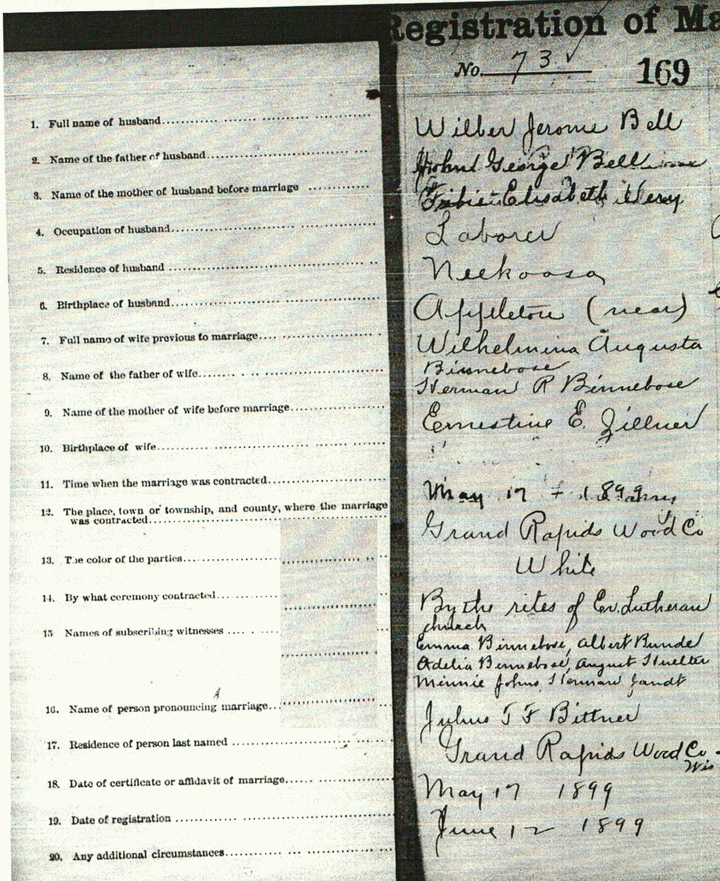 Registration of Ma
No. 73 169
1. Full name of husband Wilber Jerome Bell
2. Name of the father of husband George Bell
3. Name of the mother of husband before marriage Elisabeth
4. Occupation of husband Laborer
5. Residence of husband Neekoosa
6. Birthplace of husband Appleton (near)
7. Full name of wife previous to marriage Wilhelmina Augusta
Binnebose
8. Name of the father of wife Herman R Binnebose
9. Name of the mother of wife before marriage Ernestine E. Zillner
10. Birthplace of wife
11. Time when the marriage was contracted May 17 1899
12. The place, town or township, and county, where the marriage
was contracted Grand Rapids Wood Co
13. The color of the parties White
14. By what ceremony contracted By the rites of Ev. Lutheran
church
15 Names of subscribing witnesses Emma Binnebose, Albert Bunde
Adelia Binnebose, August
Minnie Johns, Herman Jandt
16. Name of person pronouncing marriage Julius T F Bittner
17. Residence of person last named Grand Rapids Wood Co
Wis
18. Date of certificate or affidavit of marriage May 17 1899
19. Date of registration June 12 1899
20. Any additional circumstances